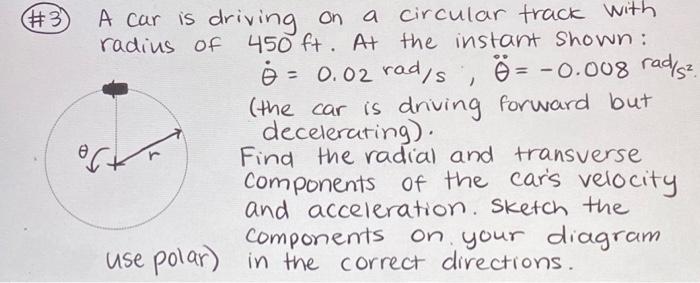 #3 A car is driving on a circular track with
radius of 450 ft. At the instant shown:
θ̇ = 0.02 rad/s , θ̈ = -0.008 rad/s².
(the car is driving forward but
decelerating).
θ r
Find the radial and transverse
components of the car's velocity
and acceleration. Sketch the
components on your diagram
use polar) in the correct directions.